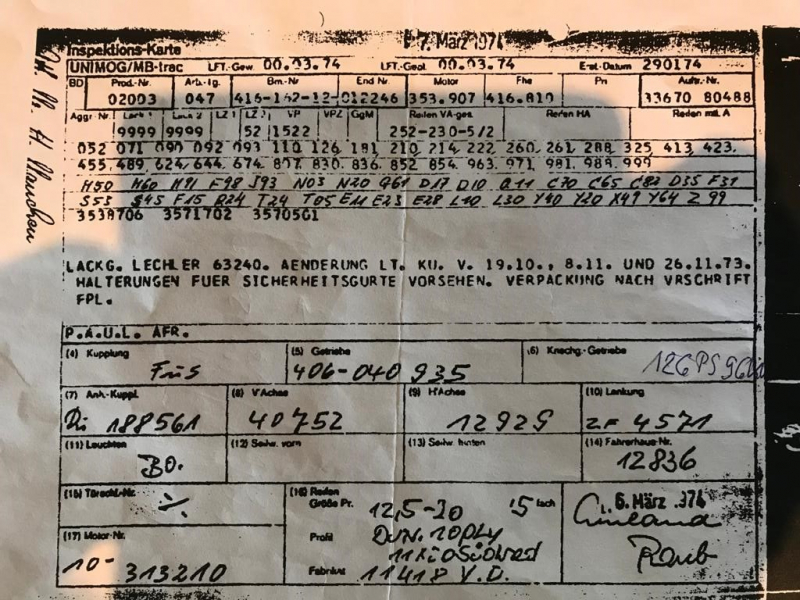 7. März 1974
Inspektions-Karte
UNIMOG/MB-trac LFT.-Gew. 00.03.74 LFT.-Geol. 00.03.74 Erst.-Datum 290174
BD Prod.-Nr. Arb.-Tg. Bm.-Nr End Nr. Motor Fhs Pn Auftr.-Nr.
02003 047 416-162-12-012246 353.907 416.810 33670 80488
Aggr Nr. Lack 1 Lack 2 LZ 1 LZ 2 VP VPZ GgM Reifen VA-ges. Reifen HA Reifen mit A
9999 9999 52 1522 252-230-5/2
052 071 090 092 093 110 126 181 210 214 222 260. 261 288 325 413 423.
455 489 624 644 674 807 830. 836. 852 854. 963. 971 981. 988. 999
H50 H60 H91 F98 J93 N03 N20 Q61 D17 D10 Q11 C70 C65 C82 D35 F31
S53 S45 F15 R24 T24 T05 E11 E23 E28 L10 L30 Y10 Y20 X49 Y64 Z99
3538706 3571702 3570501
LACKG. LECHLER 63240. AENDERUNG LT. KU. V. 19.10., 8.11. UND 26.11.73.
HALTERUNGEN FUER SICHERHEITSGURTE VORSEHEN. VERPACKUNG NACH VRSCHRIFT
FPL.
P.A.U.L. AFR.
(4) Kupplung (5) Getriebe (6) Kriechg.-Getriebe
F&S 406-040 935
(7) Anh.-Kuppl. (8) V'Achse (9) H'Achse (10) Lenkung
Ri 188561 40752 12929 ZF 4571
(11) Leuchten (12) Seilw. vorn (13) Seilw. hinten (14) Fahrerhaus-Nr.
BO. 12836
(15) Türschl.-Nr. (16) Reifen
Größe Pr. 12,5-20 5 fach 6. März 1974
Profil Dun. 10PLY
(17) Motor-Nr.
10- 313210 Fabrikat 11418 V.D.